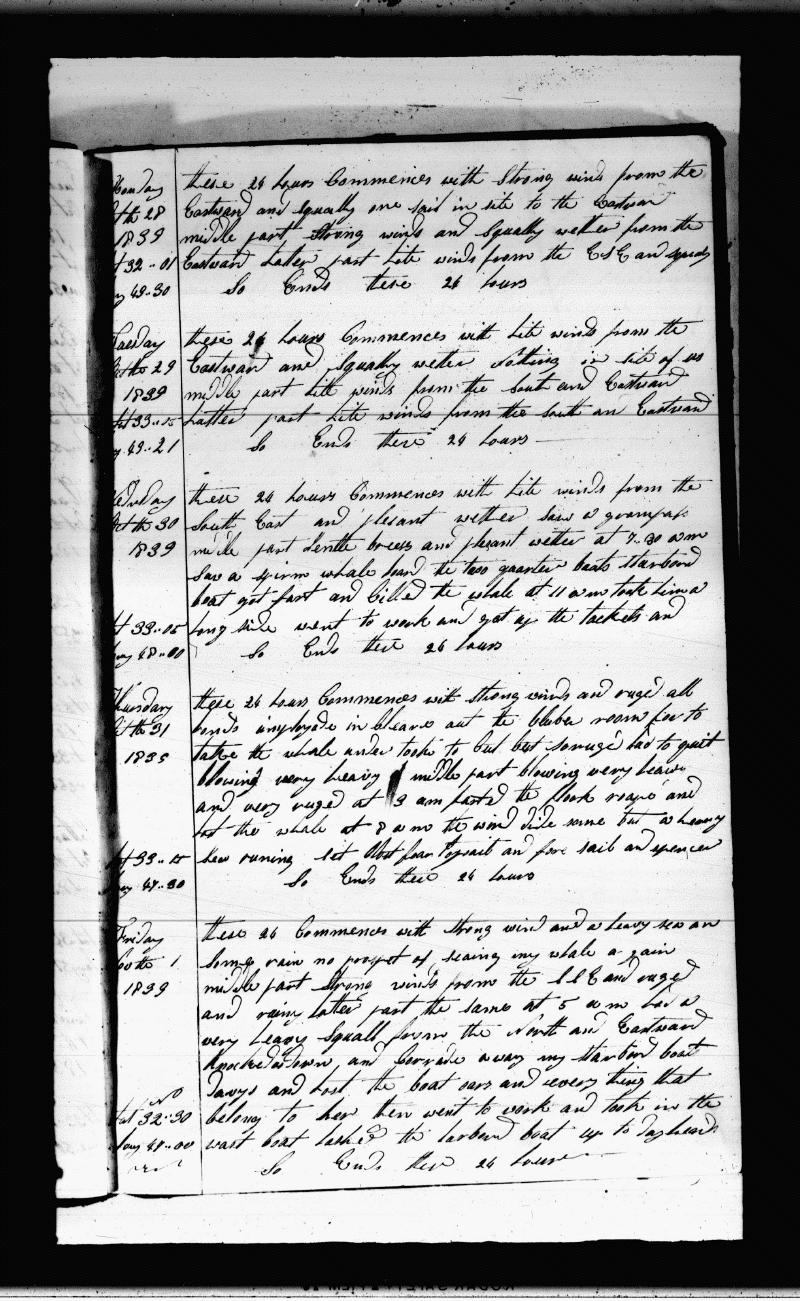 Monday these 24 hours Commences with Strong winds from the
Octh 28 Eastward and Squally one sail in site to the Eastward
1839 middle part Strong winds and Squally wether from the
Lat 32..01 Eastward Latter part Lite winds from the ESE and
Long 49..30 So Ends these 24 hours
Tuesday these 24 hours Commences with Lite winds from the
Octh 29 Eastward and Squally wether Nothing in site of us
1839 middle part Lite winds from the South and Eastward
Lat 33..15 Latter part Lite winds from the South an Eastward
49..21 So Ends these 24 hours
Wednsday these 24 hours Commences with Lite winds from the
Octh 30 South East and plesant wether Saw a grampass
1839 middle part Gentle breess and plesant wether at 7..30 am
Saw a Spirm whale the two quarter boats Starbord
boat got fast and Cilled the whale at 11 am took him a
Lat 33..05 Long side went to work and got up the tackets and
Long 48..00 So Ends these 24 hours
Thursday these 24 hours Commences with Strong winds and ruged all
Octh 31 hands imployde in Cleare out the bluber room for to
1835 take the whale under took to but but so ruged had to quit
blowing very heavy middle part blowing very heave
and very ruged at 3 am parted the flook roape and
lost the whale at 8 am the wind dide some but a heavey
Lat 33..15 Sea runing set Clost fore topsail an fore sail an spencer
Long 47..30 So Ends these 24 hours
Friday these 24 Commences with Strong wind and a heavy sea an
Novth 1 Some rain no prospet of seaing my whale a gain
1839 middle part Strong winds from the SSE and ruged
and rainy Latter part the same at 5 am had a
very heavy Squall from the North and Eastward
knocked down and Carrade away my Starbord boat
davys and Lost the boat oars and every thing that
Lat 32..30 belong to her then went to work and took in the
Long 48..00 wast boat lashed the larbourd boat up to
So Ends these 24 hours